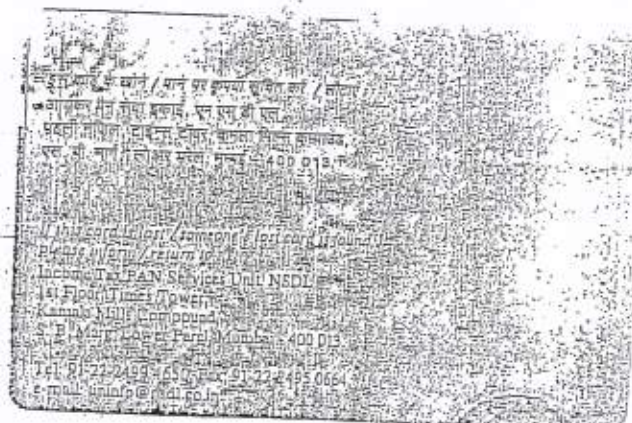 इस कार्ड के खोने / पाने पर कृपया सूचित करें / लौटाएं
आयकर पैन सेवा इकाई, एन एस डी एल
पहली मंजिल, टाइम्स टावर, कमला मिल्स कम्पाउंड
एस. बी. मार्ग, लोअर परेल, मुम्बई - 400 013
If this card is lost / someone's lost card is found,
please inform / return to :
Income Tax PAN Services Unit, NSDL
1st Floor, Times Tower,
Kamala Mills Compound,
S. B. Marg, Lower Parel, Mumbai - 400 013
Tel: 91-22-2499 4650, 91-22-2495 0664
e-mail: